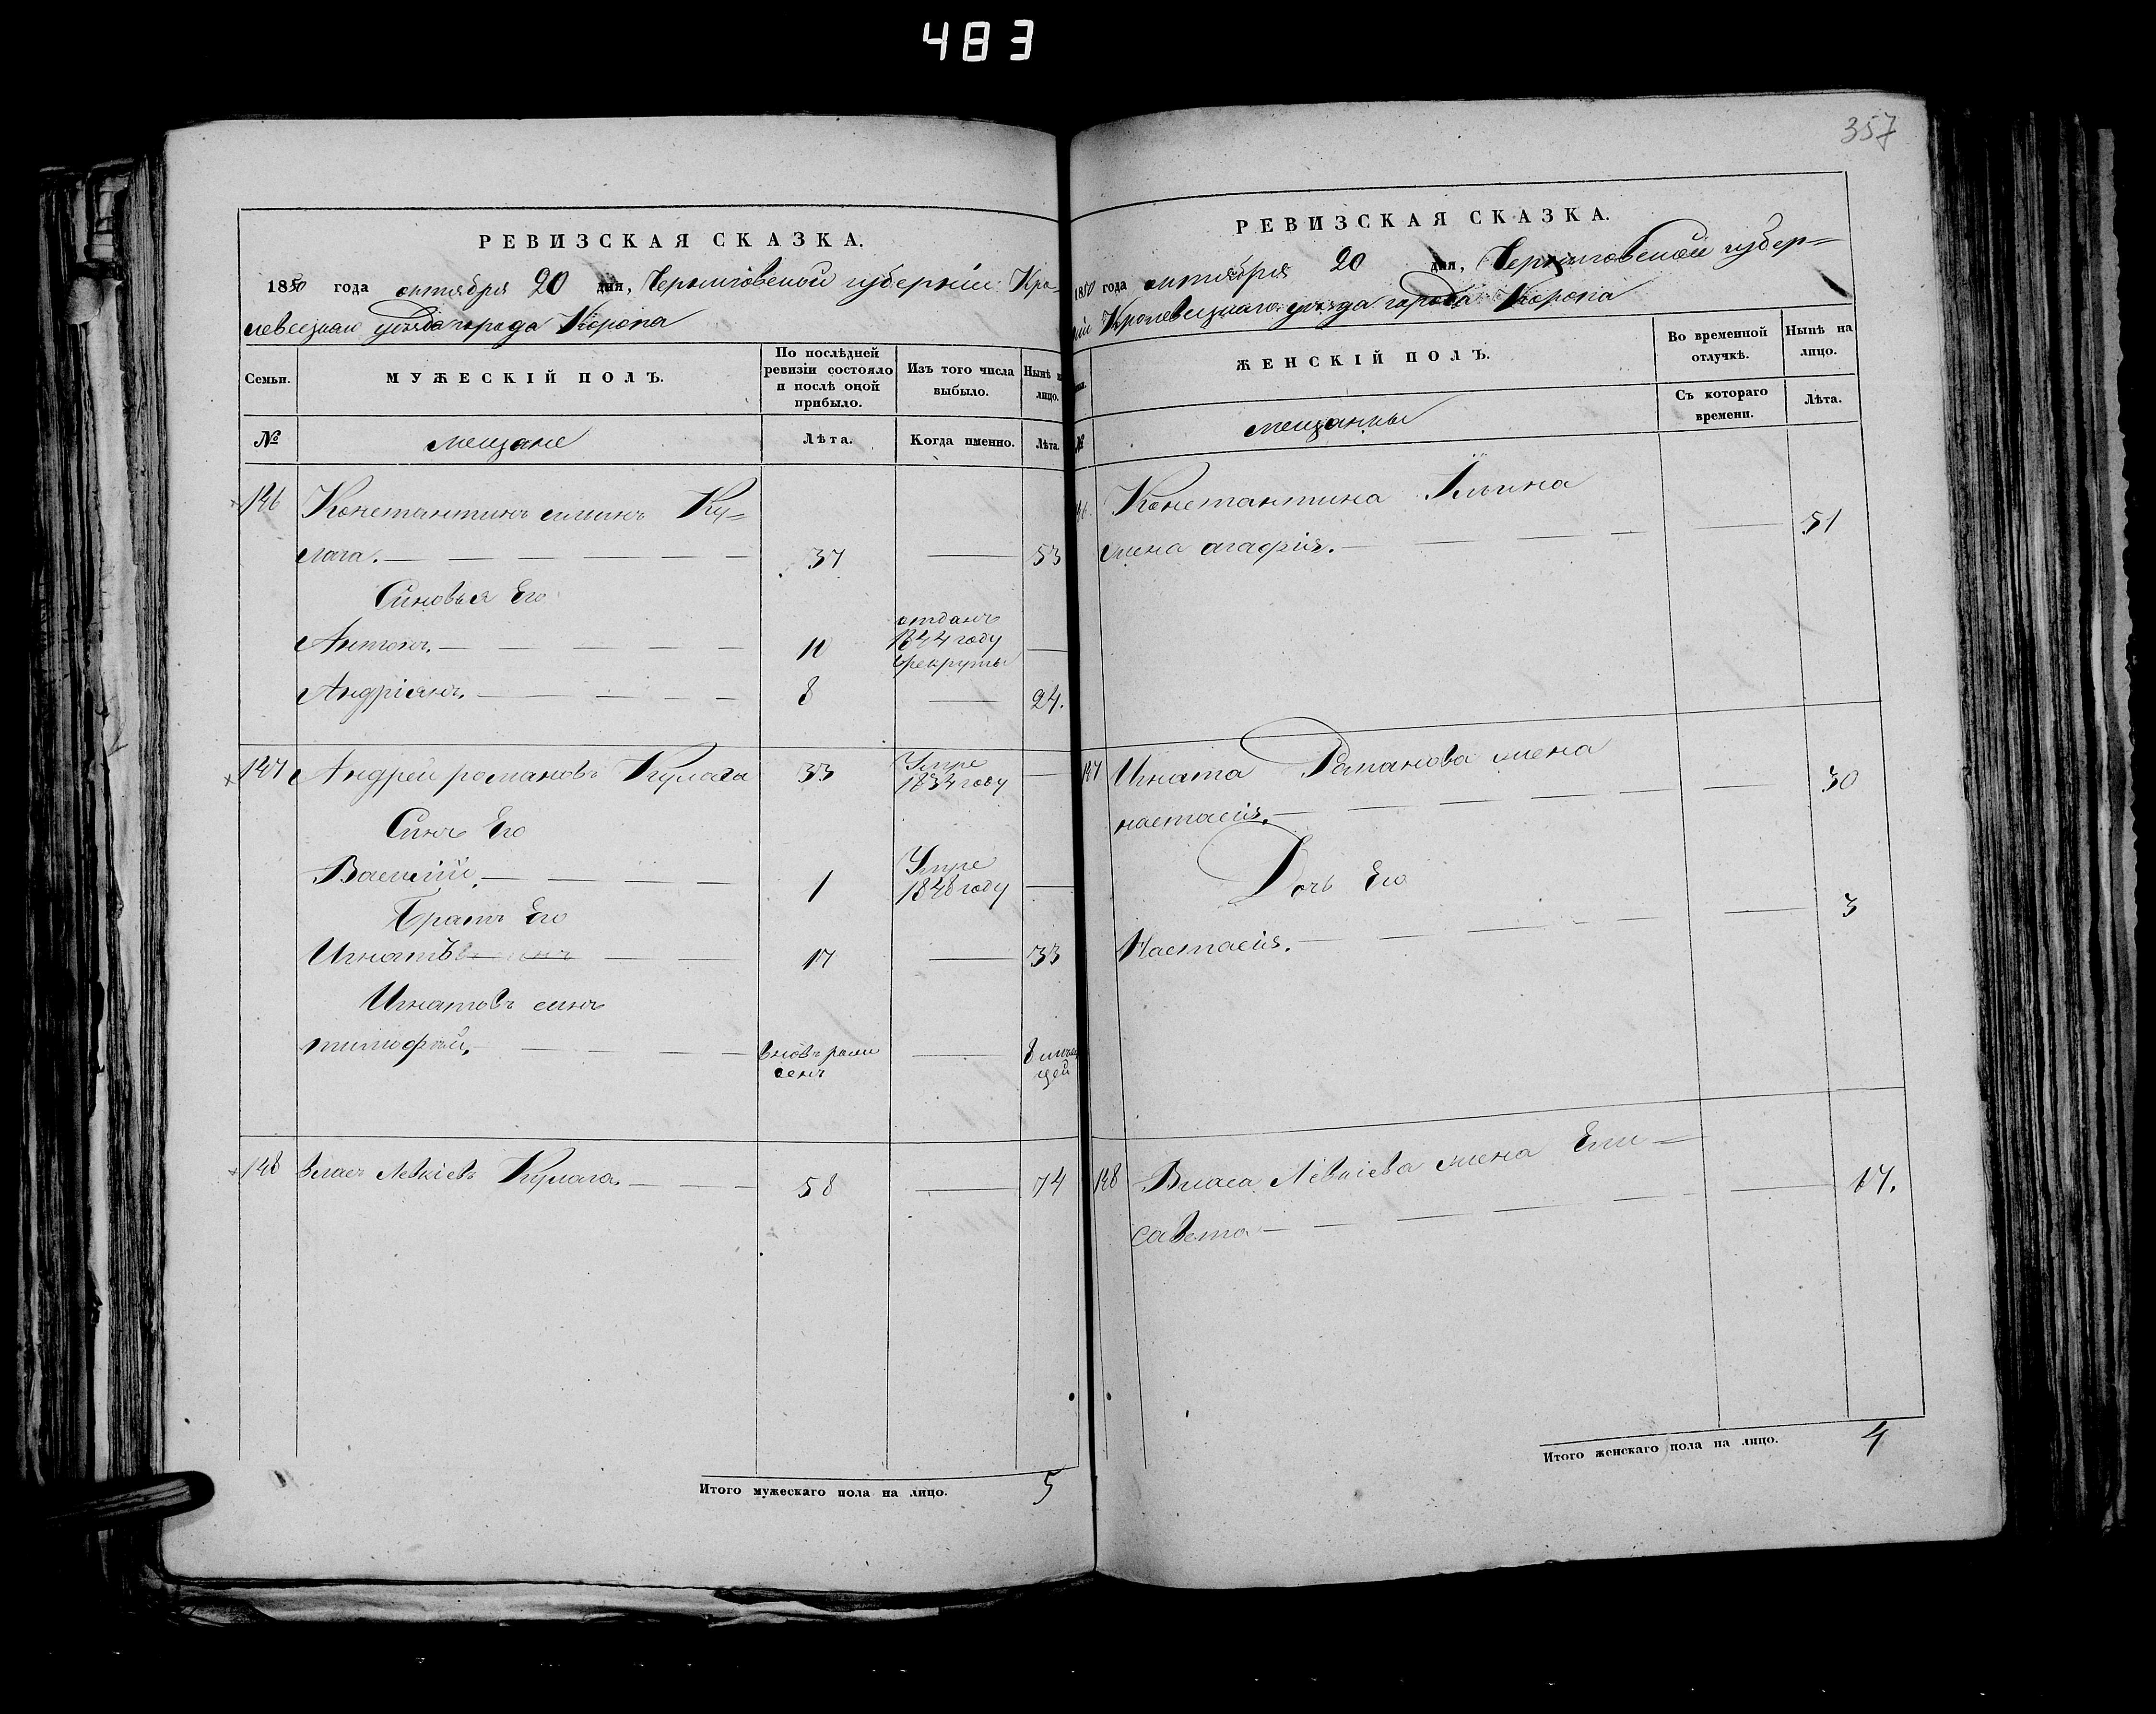 483
357
РЕВИЗСКАЯ СКАЗКА.
1850 года октября 20 дня, Черниговской губерніи Кро-
левецкаго уезда города Коропа
Семьи.
МУЖЕСКІЙ ПОЛЪ.
По послѣдней ревизіи состояло и послѣ оной прибыло.
Изъ того числа выбыло.
Нынѣ на лицо.
№
мещане
Лѣта.
Когда именно.
Лѣта.
146 Константинъ Ку=
лага. 37 53
Синовья Его
Антонъ. 10 отданъ 1844 году врекруты
Андріянъ. 8 24.
147 Андрей романовъ Кулага 33 Умре 1834 году
Синъ Его
Василій. 1 Умре 1848 году
Братъ Его
Игнатъ 17 33
Игнатовъ синъ
тимофѣй. вновь 8
148 Власъ Левкіевъ Кулага. 58 74
Итого мужескаго пола на лицо. 5
РЕВИЗСКАЯ СКАЗКА.
1850 года октября 20 дня, Черниговской губер=
ніи Кролевецкаго уезда города Коропа
ЖЕНСКІЙ ПОЛЪ.
Во временной отлучкѣ.
Нынѣ на лицо.
№
мещанки
Съ котораго времени.
Лѣта.
146 Константина
жена агафія. 51
147 Игната Романова жена
настасия. 30
Дочь Его
Настасия. 3
148 Власа Левкіева жена Ели=
савета 17.
Итого женскаго пола на лицо. 4